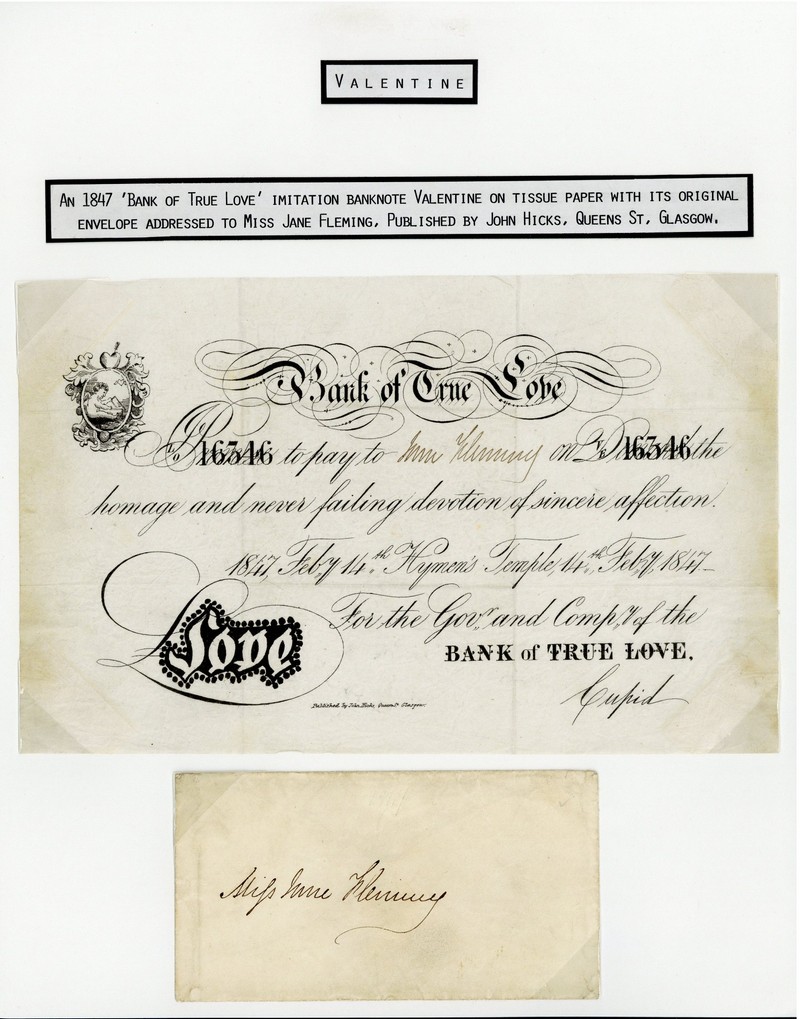 VALENTINE
AN 1847 'BANK OF TRUE LOVE' IMITATION BANKNOTE VALENTINE ON TISSUE PAPER WITH ITS ORIGINAL
ENVELOPE ADDRESSED TO MISS JANE FLEMING, PUBLISHED BY JOHN HICKS, QUEENS ST, GLASGOW.
Bank of True Love
No 16346 No 16346
I Promise to pay to Jane Fleming on Demand the
homage and never failing devotion of sincere affection.
1847, Feby 14th Hymen's Temple, 14th Feby 1847
For the Govr and Compy of the
Love
BANK of TRUE LOVE.
Cupid
Published by John Hicks, Queen St Glasgow.
Miss Jane Fleming